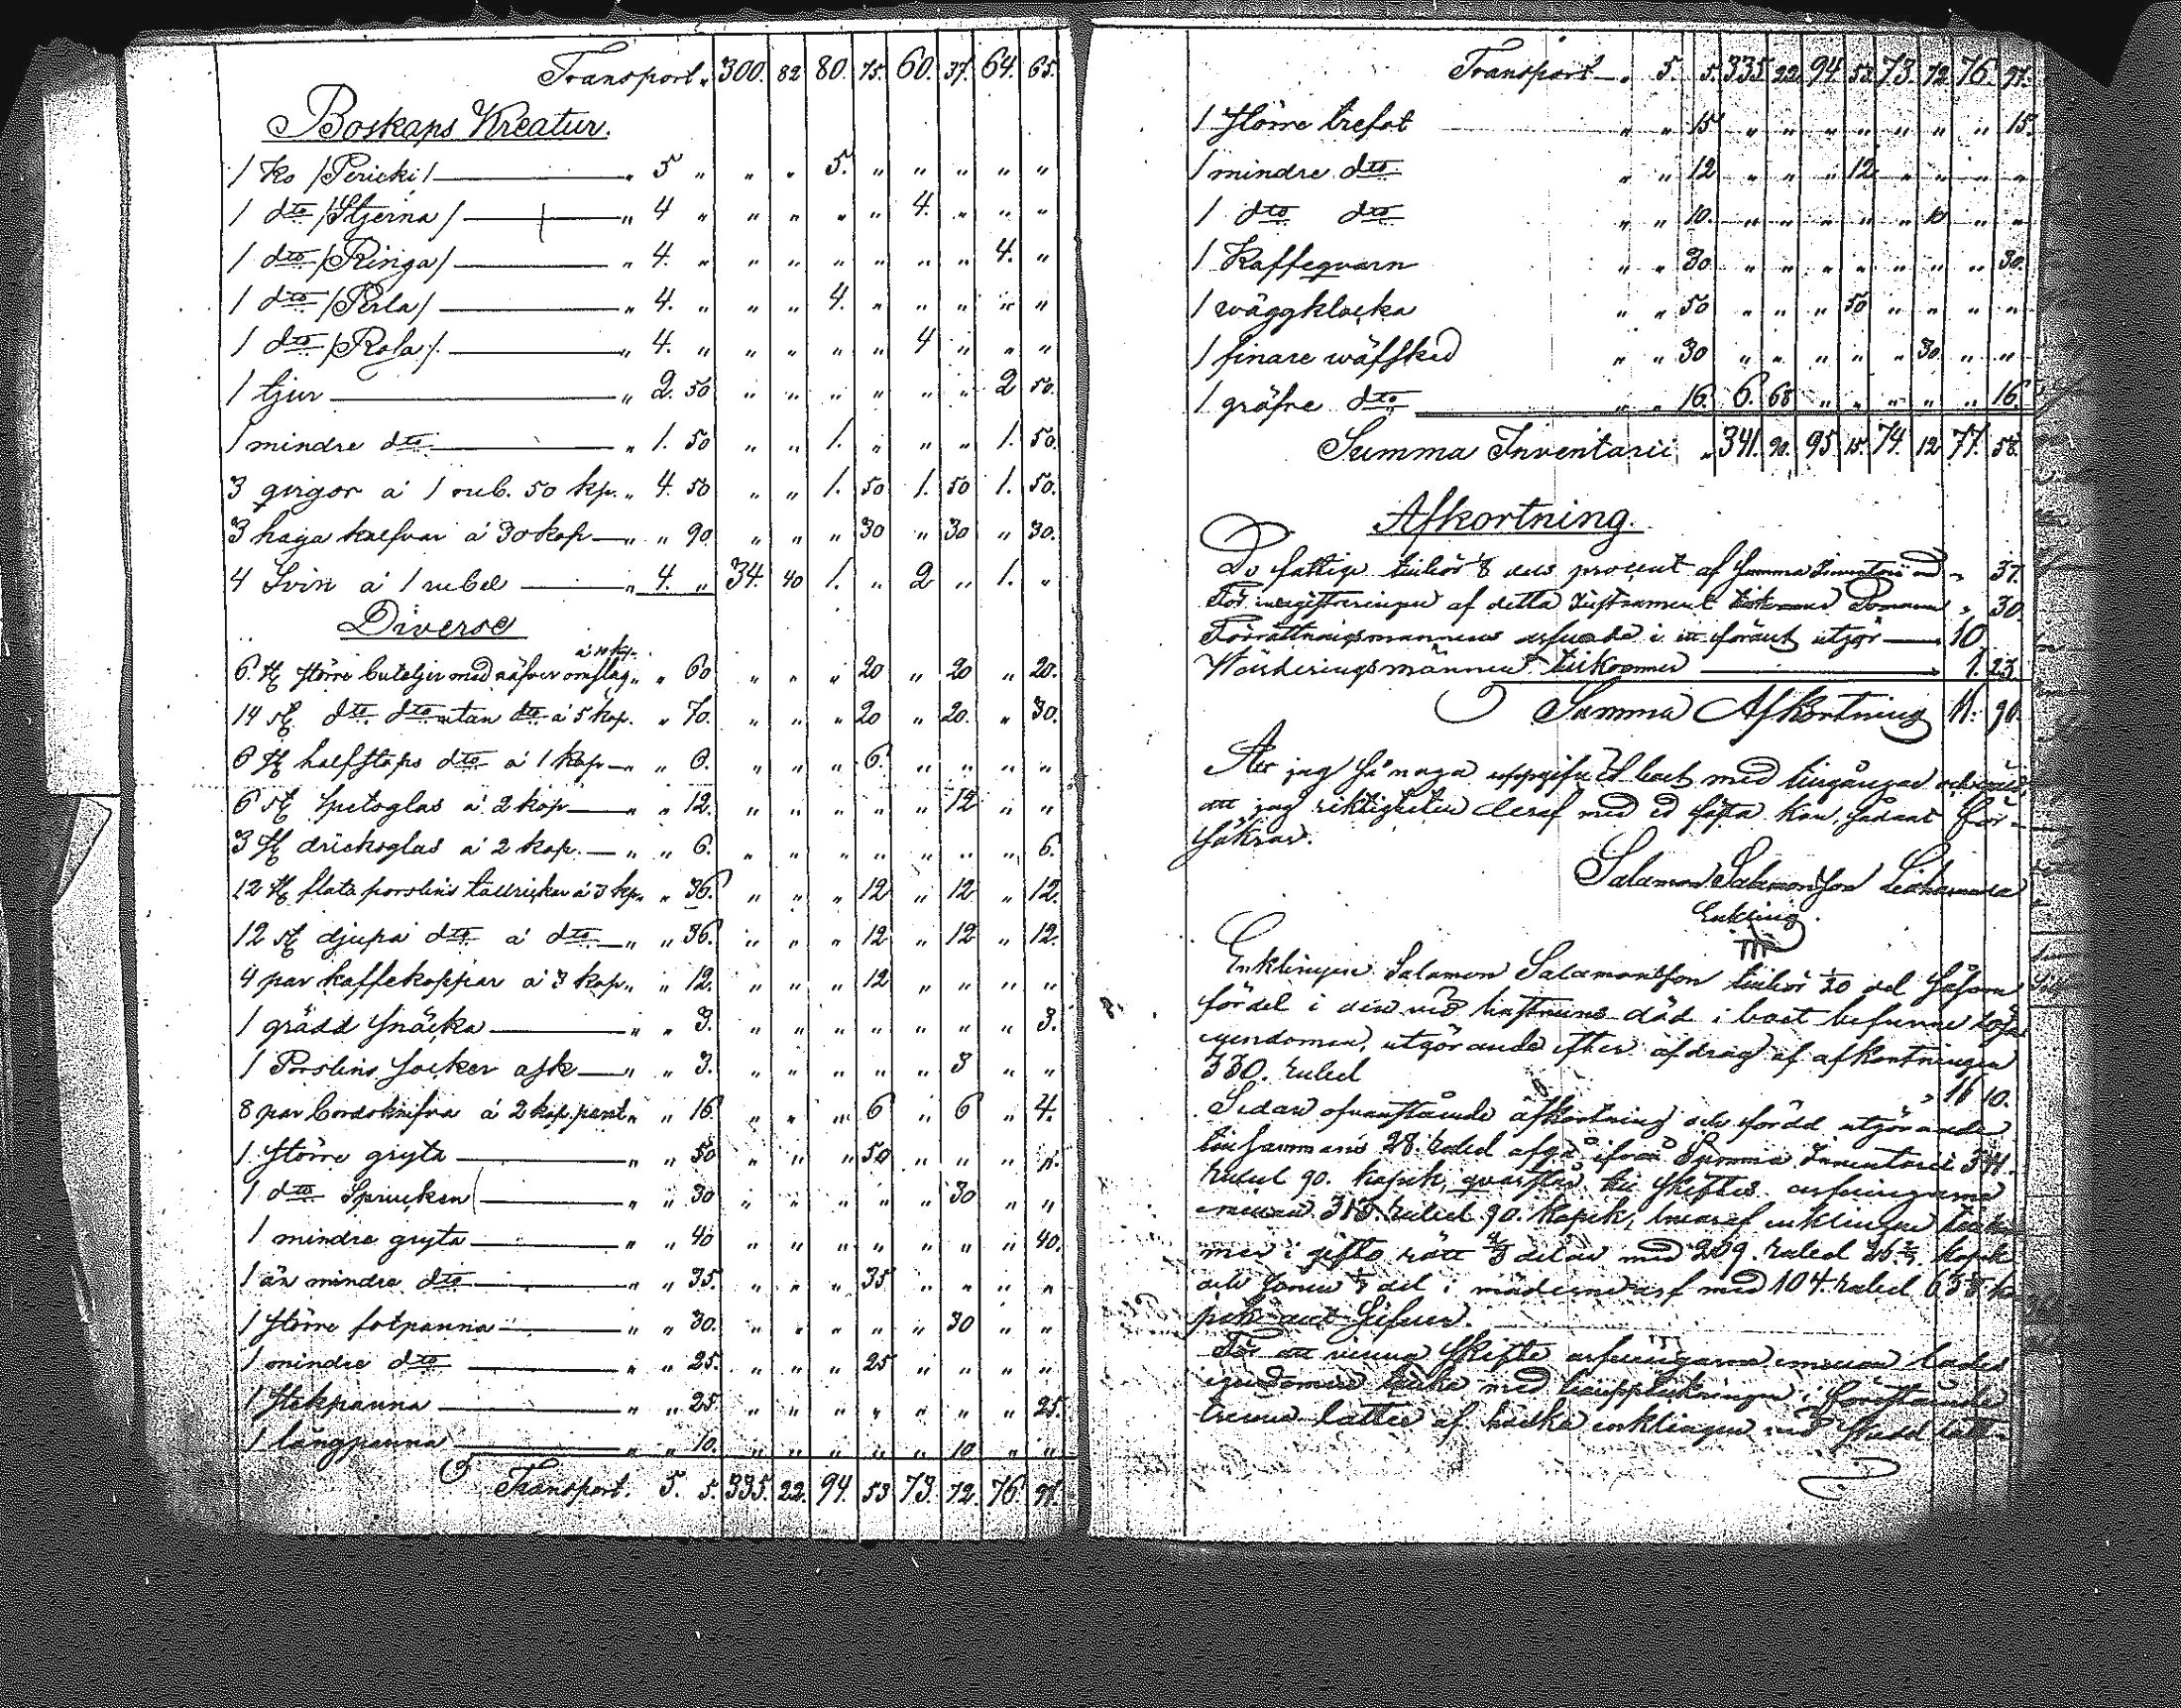 Transport „ 300. 82 80. 75. 60. 37. 64. 65.
Boskaps Kreatur.
1 Ko /Pericki/ „ 5 „ „ „ 5. „ „ „ „ „
1 dto /Stjerna/ „ 4 „ „ „ „ „ 4. „ „ „
1 dto /Ringa/ „ 4. „ „ „ „ „ „ „ 4. „
1 dto /Perla/ „ 4. „ „ „ 4. „ „ „ „ „
1 dto /Rosa/. „ 4. „ „ „ „ „ 4 „ „ „
1 tjur „ 2. 50 „ „ „ „ „ „ 2 50.
1 mindre dto „ 1. 50 „ „ 1. „ „ „ 1. 50.
3 qvigor á 1 rub. 50 kp. „ 4. 50 „ „ 1. 50 1. 50 1. 50.
3 haga kalfvar á 30 kop „ „ 90. „ „ „ 30 „ 30 „ 30.
4 Svin á 1 rubel „ 4. „ 34. 40 1. „ 2 „ 1. „
Diverse
á 10 kp.
6. st större buteljer med näfver omslag „ „ 60 „ „ „ 20 „ 20 „ 20.
14 st dto dto utan dto á 5 kop. „ 70. „ „ „ 20 „ 20. „ 30.
6 st halfstops dto á 1 kop „ „ 6. „ „ „ 6. „ „ „ „
6 st spetsglas á 2 kop „ „ 12. „ „ „ „ „ 12 „ „
3 st dricksglas á 2 kop. „ „ 6. „ „ „ „ „ „ „ 6.
12 st flata porslins tallrickar á 3 kp. „ „ 36. „ „ „ 12 „ 12 „ 12.
12 st djupa dto á dto „ „ 36. „ „ „ 12 „ 12 „ 12.
4 par kaffekoppar á 3 kop. „ „ 12. „ „ „ 12 „ „ „ „
1 grädd snäcka „ „ 3. „ „ „ „ „ „ „ 3.
1 Porslins socker ask „ „ 3. „ „ „ „ „ 3 „ „
8 par bordsknifva á 2 kop paret „ „ 16. „ „ „ 6 „ 6 „ 4.
1 större gryta „ „ 50 „ „ „ 50 „ „ „ „
1 dto Sprucken „ „ 30 „ „ „ „ „ 30 „ „
1 mindre gryta „ „ 40 „ „ „ „ „ „ „ 40.
1 än mindre dto „ „ 35. „ „ „ 35 „ „ „ „
1 större fotpanna „ „ 30. „ „ „ „ „ 30 „ „
1 mindre dto „ „ 25. „ „ „ 25 „ „ „ „
1 stekpanna „ „ 25. „ „ „ „ „ „ „ 25.
1 långpanna „ „ 10. „ „ „ „ „ 10 „ „
Transport. 5. 5. 335. 22. 94. 53 73. 72. 76. 97.
Transport „ 5. 5. 335 22 94. 53 73. 72. 76. 97.
1 större trefot „ „ 15 „ „ „ „ „ „ „ 15.
1 mindre dto „ „ 12 „ „ „ 12 „ „ „ „
1 dto dto „ „ 10. „ „ „ „ „ 10 „ „
1 Kaffeqvarn „ „ 30 „ „ „ „ „ „ „ 30.
1 wäggklocka „ „ 50 „ „ „ 50 „ „ „ „
1 finare wäfsked „ „ 30 „ „ „ „ „ 30 „ „
1 gröfre dto „ „ 16. 6. 68 „ „ „ „ „ 16.
Summa Inventarii „ 341. 90. 95. 15. 74. 12 77. 58.
Afkortning.
De fattige tillkör 1/8 dels procent af Summa Inventarii med „ 37.
För inregistreringen af detta Instrument „ 30.
Förrättningsmannens arfvode i ett föraut utgör 10.
Wärderingsmännen tillkommer 1. 23.
Summa Afkortning 11. 90.
Att jag så noga uppgifvit boet med tingångar
att jag riktigheten deraf med ed fästa kan, sådant för-
säkrar.
Salamon Salamonsson
Enkling.
Enklingen Salamon Salamonsson tillkör 1/20 del såsom
fördel i den vid hustruns död i boet befunne lösa
egendomen, utgörande efter afdrag af afkortningen
330. rubel „ 16 10.
Sedan ofvanstående afkortning och fördel utgörande
tillsammans 28. rubel afgå ifrån Summa Inventarii 341.
rubel 90. kopek, qvarstår till skiftes arfvingarne
emellan 313. rubel 90. kopek, hvaraf enklingen tillkom
mer i gifto rätt 2/3 delar med 209. rubel 26 2/3 kopek
och sonen 1/3 del i mödernearf med 104. rubel 63 1/3 ko
pek
För att vinna skifte arfvingarne emellan lades
egendomen med i förestående
trenne lotter af hvilka enklingen